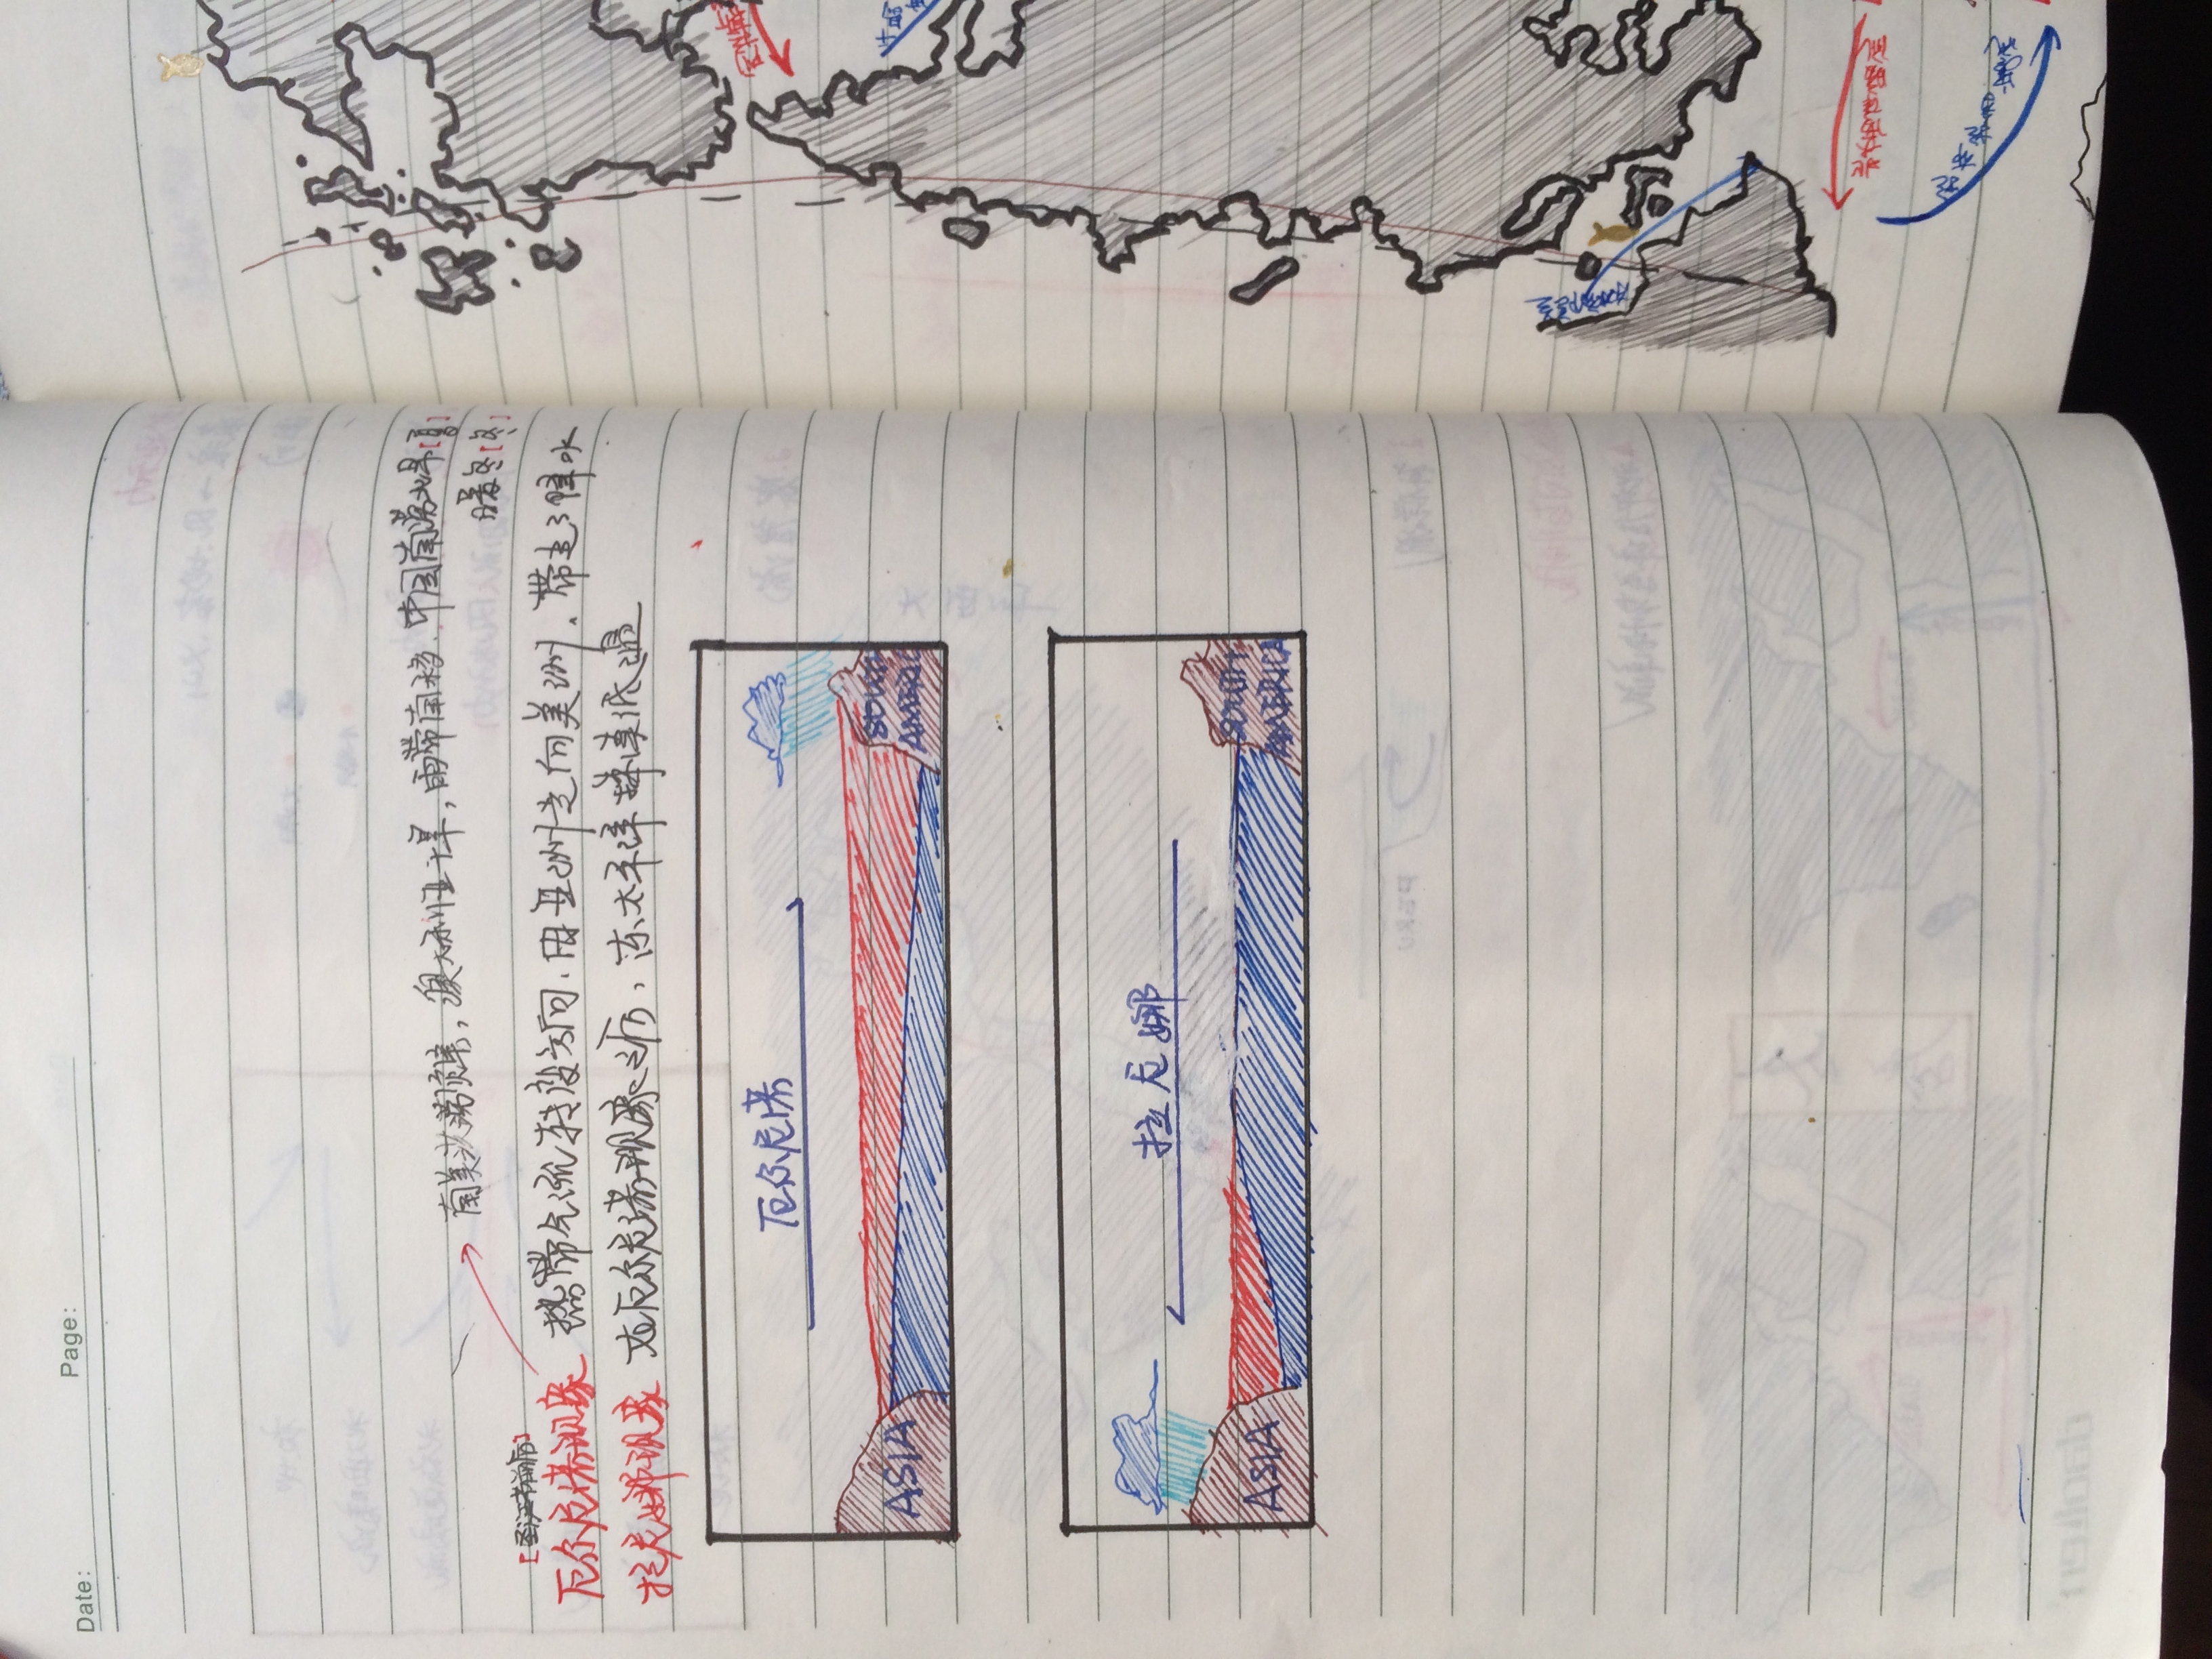 Date:
Page:
南美洪涝灾害，澳大利亚干旱，雨带南移、中国南涝北旱[夏]
暖冬[冬]
[圣诞节前后]
厄尔尼诺现象 热带气流转变方向，由亚洲走向美洲，带走了降水
拉尼娜现象 在厄尔尼诺现象之后，东太平洋持续低温
厄尔尼诺
ASIA
SOUTH
AMERIC
拉尼娜
ASIA
SOUTH
AMERICA
北大西洋暖流